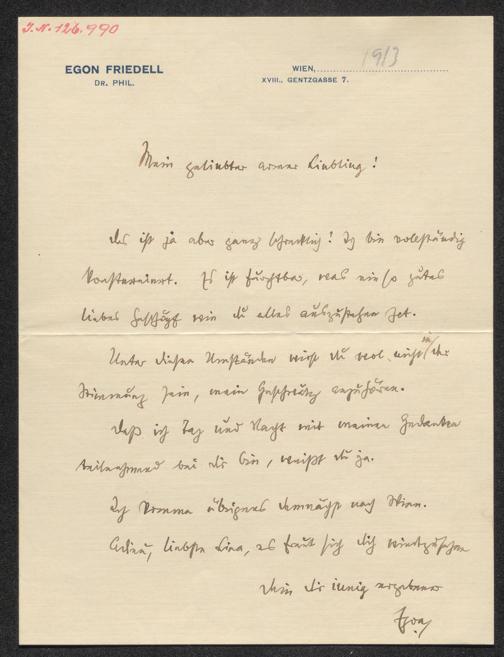 J.N. 126.990
EGON FRIEDELL
DR. PHIL.
WIEN, 1913
XVIII., GENTZGASSE 7.
Mein geliebter armer Liebling!
das ist ja aber ganz schrecklich! Ich bin vollständig
konsterniert. Es ist furchtbar, was ein so gutes
liebes Geschöpf wie du alles auszustehen hat.
Unter diesen Umständen wirst du wol nicht in der
Stimmung sein, mein Geschwätz anzuhören.
Daß ich Tag und Nacht mit meinen Gedanken
teilnehmend bei dir bin, weißt du ja.
Ich komme übrigens demnächst nach Wien.
Adieu, liebste Lina, es freut sich dich wiederzusehen
dein dir innig ergebener
Egon